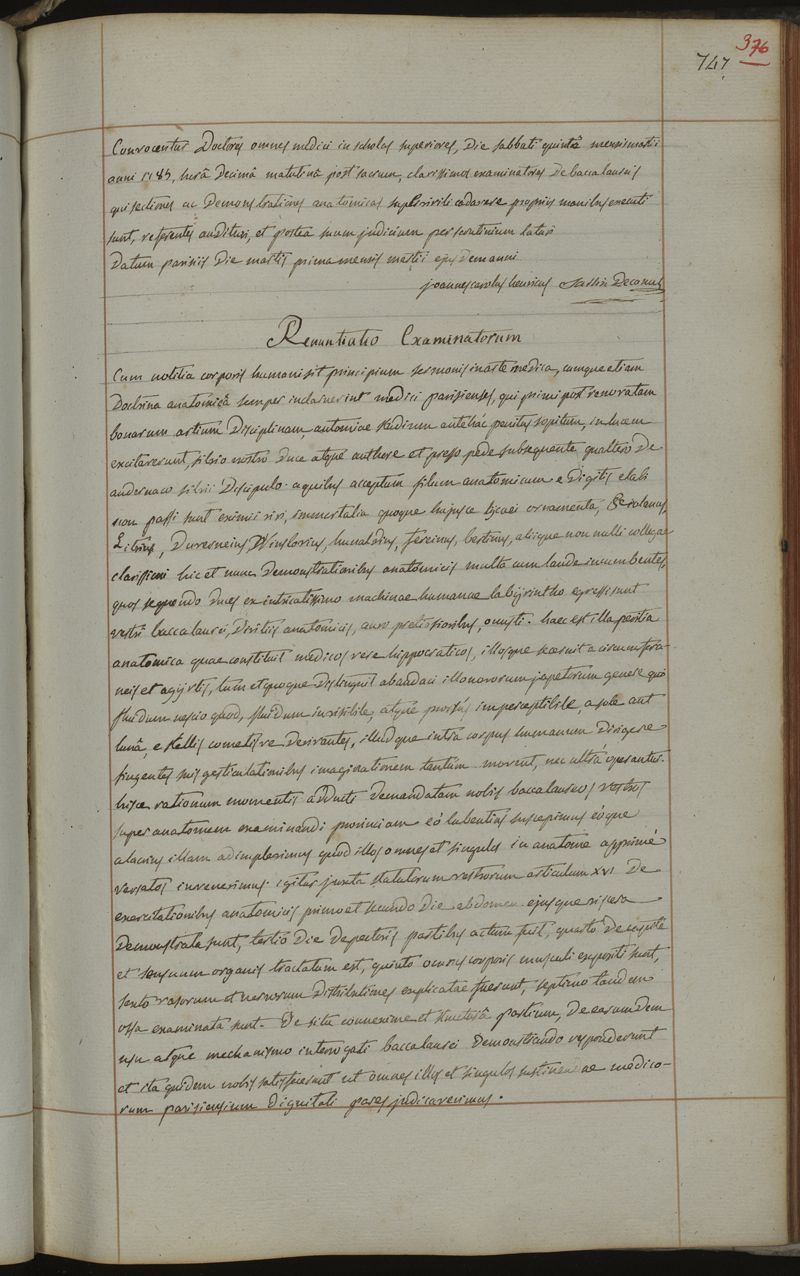 376
747
Convocentur Doctores omnes medici in scholas superiores, Die sabbati quintâ mensis martii
anni 1785, horâ Decimâ matutinâ post sacrum, clarissimos examinatores De baccalaureis
qui sectiones ac Demonstrationes anatomicas super virili cadavere propriis manibus executi
sunt, referentes audituri, et postea suum judicium per scrutinium laturi
Datum parisiis Die martis prima mensis martii ejusdem anni
joannes carolus henricus Sallin Decanus
Renuntiatio Examinatorum
Cum notitia corporis humani sit principium sermonis in arte medica, cumque etiam
Doctrina anatomicâ semper inclaruerint medici parisienses, qui primi post renovatam
bonarum artium Disciplinam, antomiae studium antehàc penitus sopitum, in lucem
excitaverunt, silvio nostro Duce atque authore et presso pede subsequente gualtero De
andernaco silvii Discipulo. a quibus acceptum filum anatomicum e Digitis elabi
non passi sunt eximii viri, immortalia quoque hujusce lycaei ornamenta, Riolanus,
Littrius, Duverneius, Winslovius, hunaldus, fereinus, bertinus, aliique non nulli collegae
clarissimi hic et nunc Demonstrationibus anatomicis multa cum laude incumbentes,
quos sequendo Duces ex intricatissimo machinae humanae labyrintho egressi sunt
vestri baccalaurei, Divitiis anatomicis, auro pretiosioribus, onusti. haec est illa peritia
anatomica quae constituit medicos vere hippocraticos, illosque secernit a circumfora-
neis et agyrtis, tum et quoque Distinguit ab audaci illo novorum japetorum genere qui
fluidum nescio quod, fluidum invisibile, atque prorsùs imperceptibile, a sole aut
lunâ, e stellis cometisve Derivantes, illudque intra corpus humanum Dirigere
fingentes suis gesticulationibus imaginationem tantùm movent, nec ultrà operantur.
hisce rationum momentis adducti Demandatam nobis baccalaureos vestros
super anatomem examinandi provinciam eò lubentius suscepimus eòque
alacrius illam adimplevimus quod illos omnes et singulos in anatome apprimè
versatos invenerimus. igitur juxta statutorum vestrorum articulum XVI De
exercitationibus anatomicis primo et secundo Die abdomen ejusque viscera
Demonstrata sunt, tertio Die De pectoris partibus actum fuit, quarto De capite
et sensuum organis tractatum est, quinto omnes corporis musculi expositi sunt,
sexto vasorum et nervorum Distributiones explicatae fuerunt, septimo tandem
ossa examinata sunt. De situ connexione et structurâ partium, De earumdem
usu atque mechanismo interrogati baccalaurei Demonstrando responderunt
et ita quidem nobis satisfecerunt ut omnes illos et singulos ae medico-
rum parisiensium Dignitati pares judicaverimus.